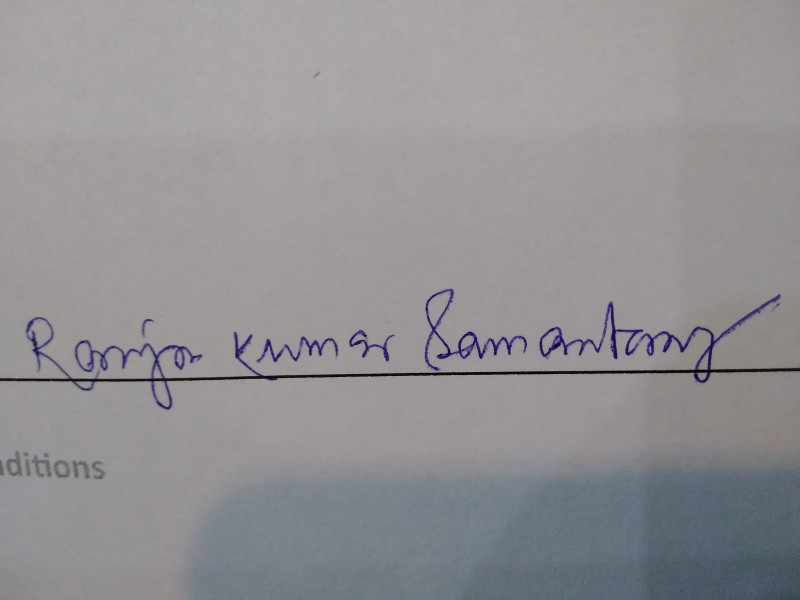 Ranjan Kumar Samantaray
nditions